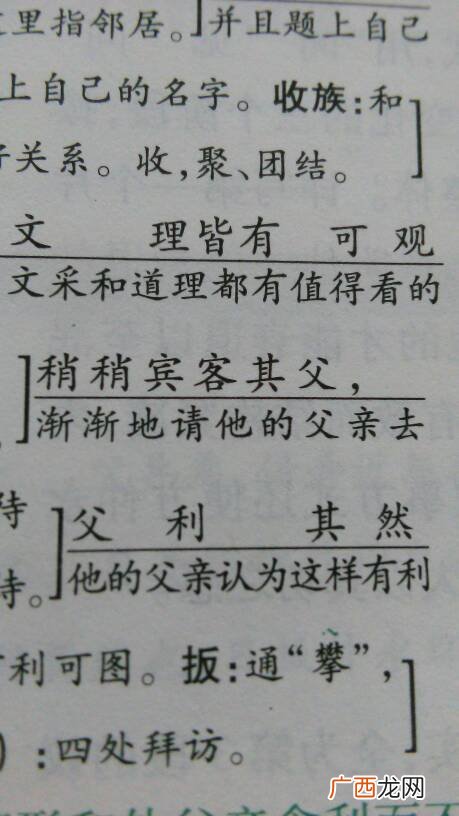 里指邻居。]并且题上自己
上自己的名字。收族:和
关系。收,聚、团结。]
文 理皆有 可观
文采和道理都有值得看的
]稍稍宾客其父,
渐渐地请他的父亲去
待
]父 利 其 然
待。他的父亲认为这样有利
利可图。扳:通“攀”,
):四处拜访。]
广西龙网